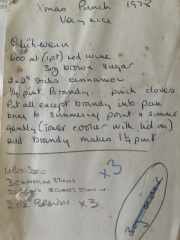 Xmas Punch 1978
Very nice
Glühwein
600 ml (1pt) red wine
30g brown sugar
2x2" sticks cinnamon
1/4 pint Brandy. pinch cloves
Put all except brandy into pan
bring to simmering point & simmer
gently (lower cooker with lid on)
add brandy makes 1 1/4 pint
x3
3 cinnamon sticks
2 oz Brandy x3